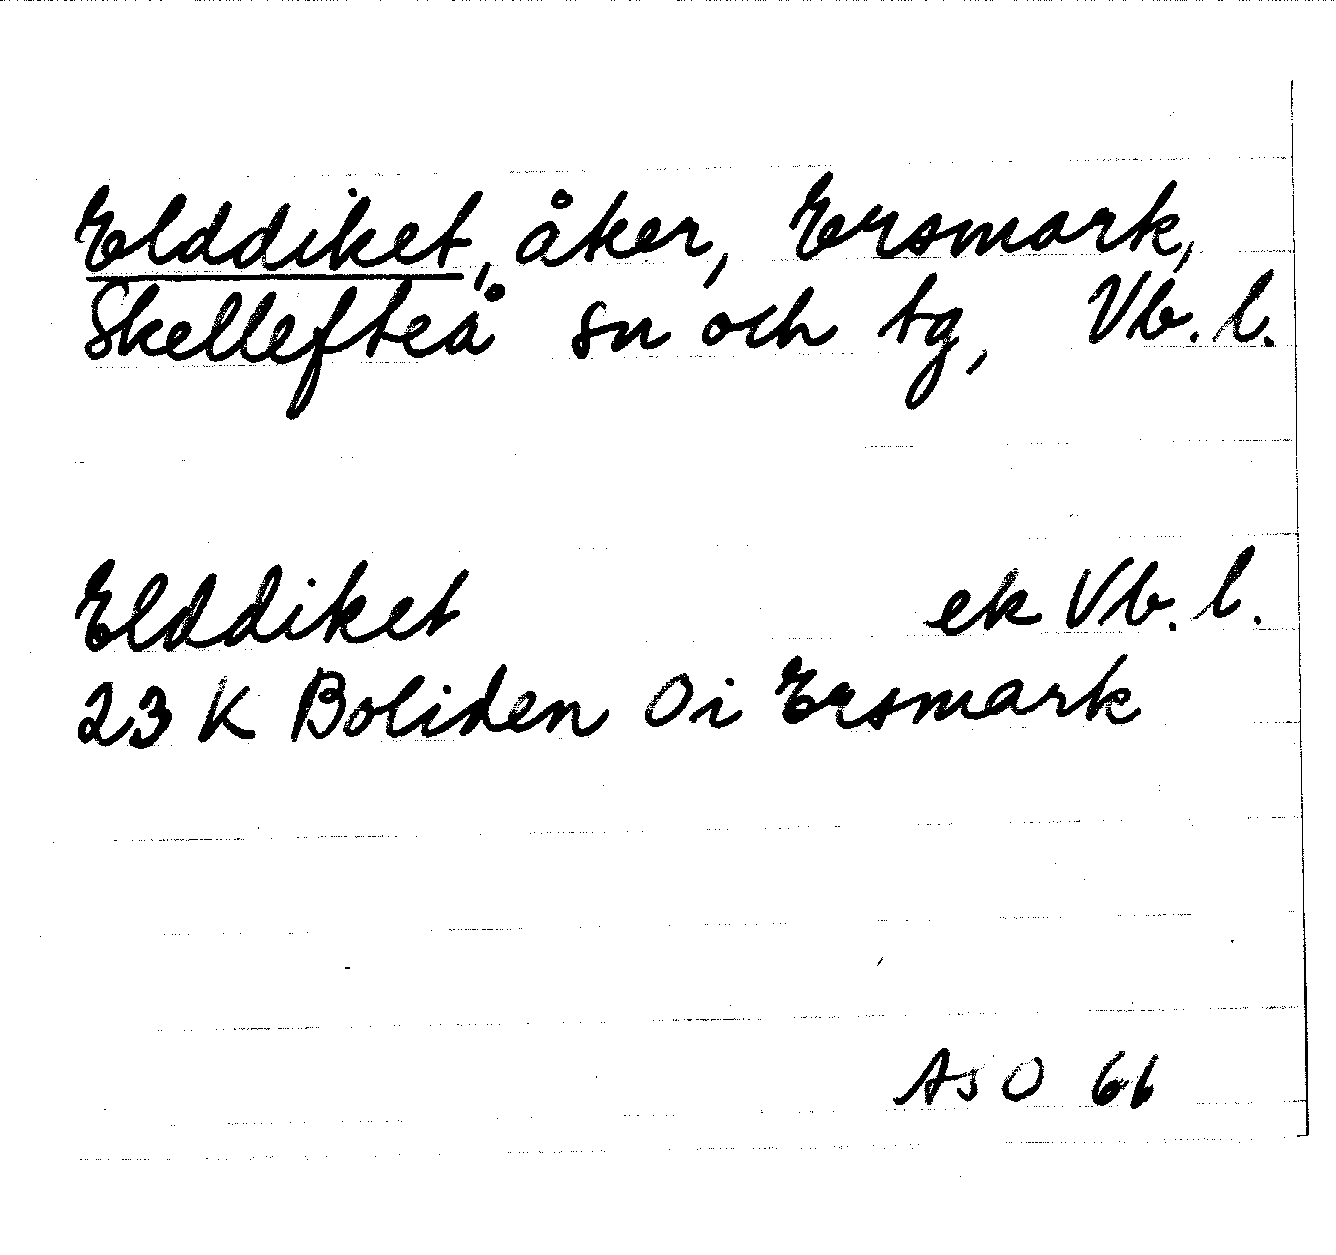 Elddiket, åker, Ersmark,
Skellefteå sn och tg, Vb. l.
Elddiket ek Vb. l.
23 K Boliden Oi Ersmark
ASO 66